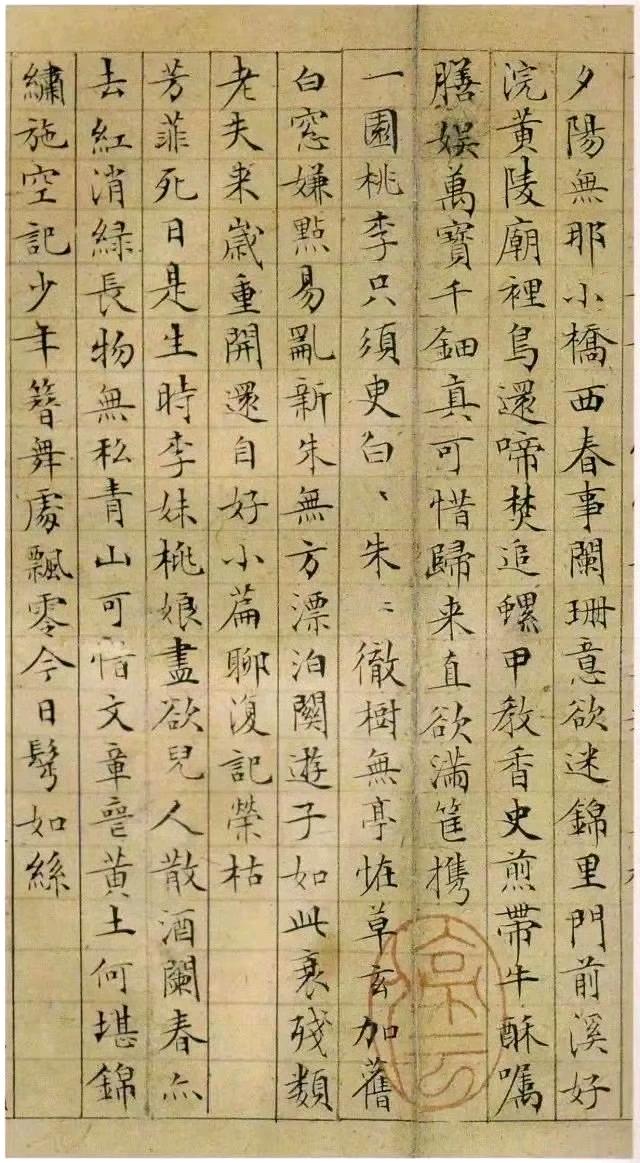 夕陽無那小橋西春事闌珊意欲迷錦里門前溪好
浣黃陵廟裡鳥還啼焚追螺甲教香史煎帶牛酥囑
膳娛萬寶千鈿真可惜歸来直欲滿筐携
一園桃李只須臾白〻朱〻徹樹無亭恠草玄加舊
白窓嫌點易亂新朱無方漂泊關遊子如此衰殘類
老夫来歲重開還自好小篇聊復記榮枯
芳菲死日是生時李妹桃娘盡欲兒人散酒闌春亦
去紅消緑長物無私青山可惜文章喪黃土何堪錦
繡施空記少年簪舞處飄零今日鬂如絲